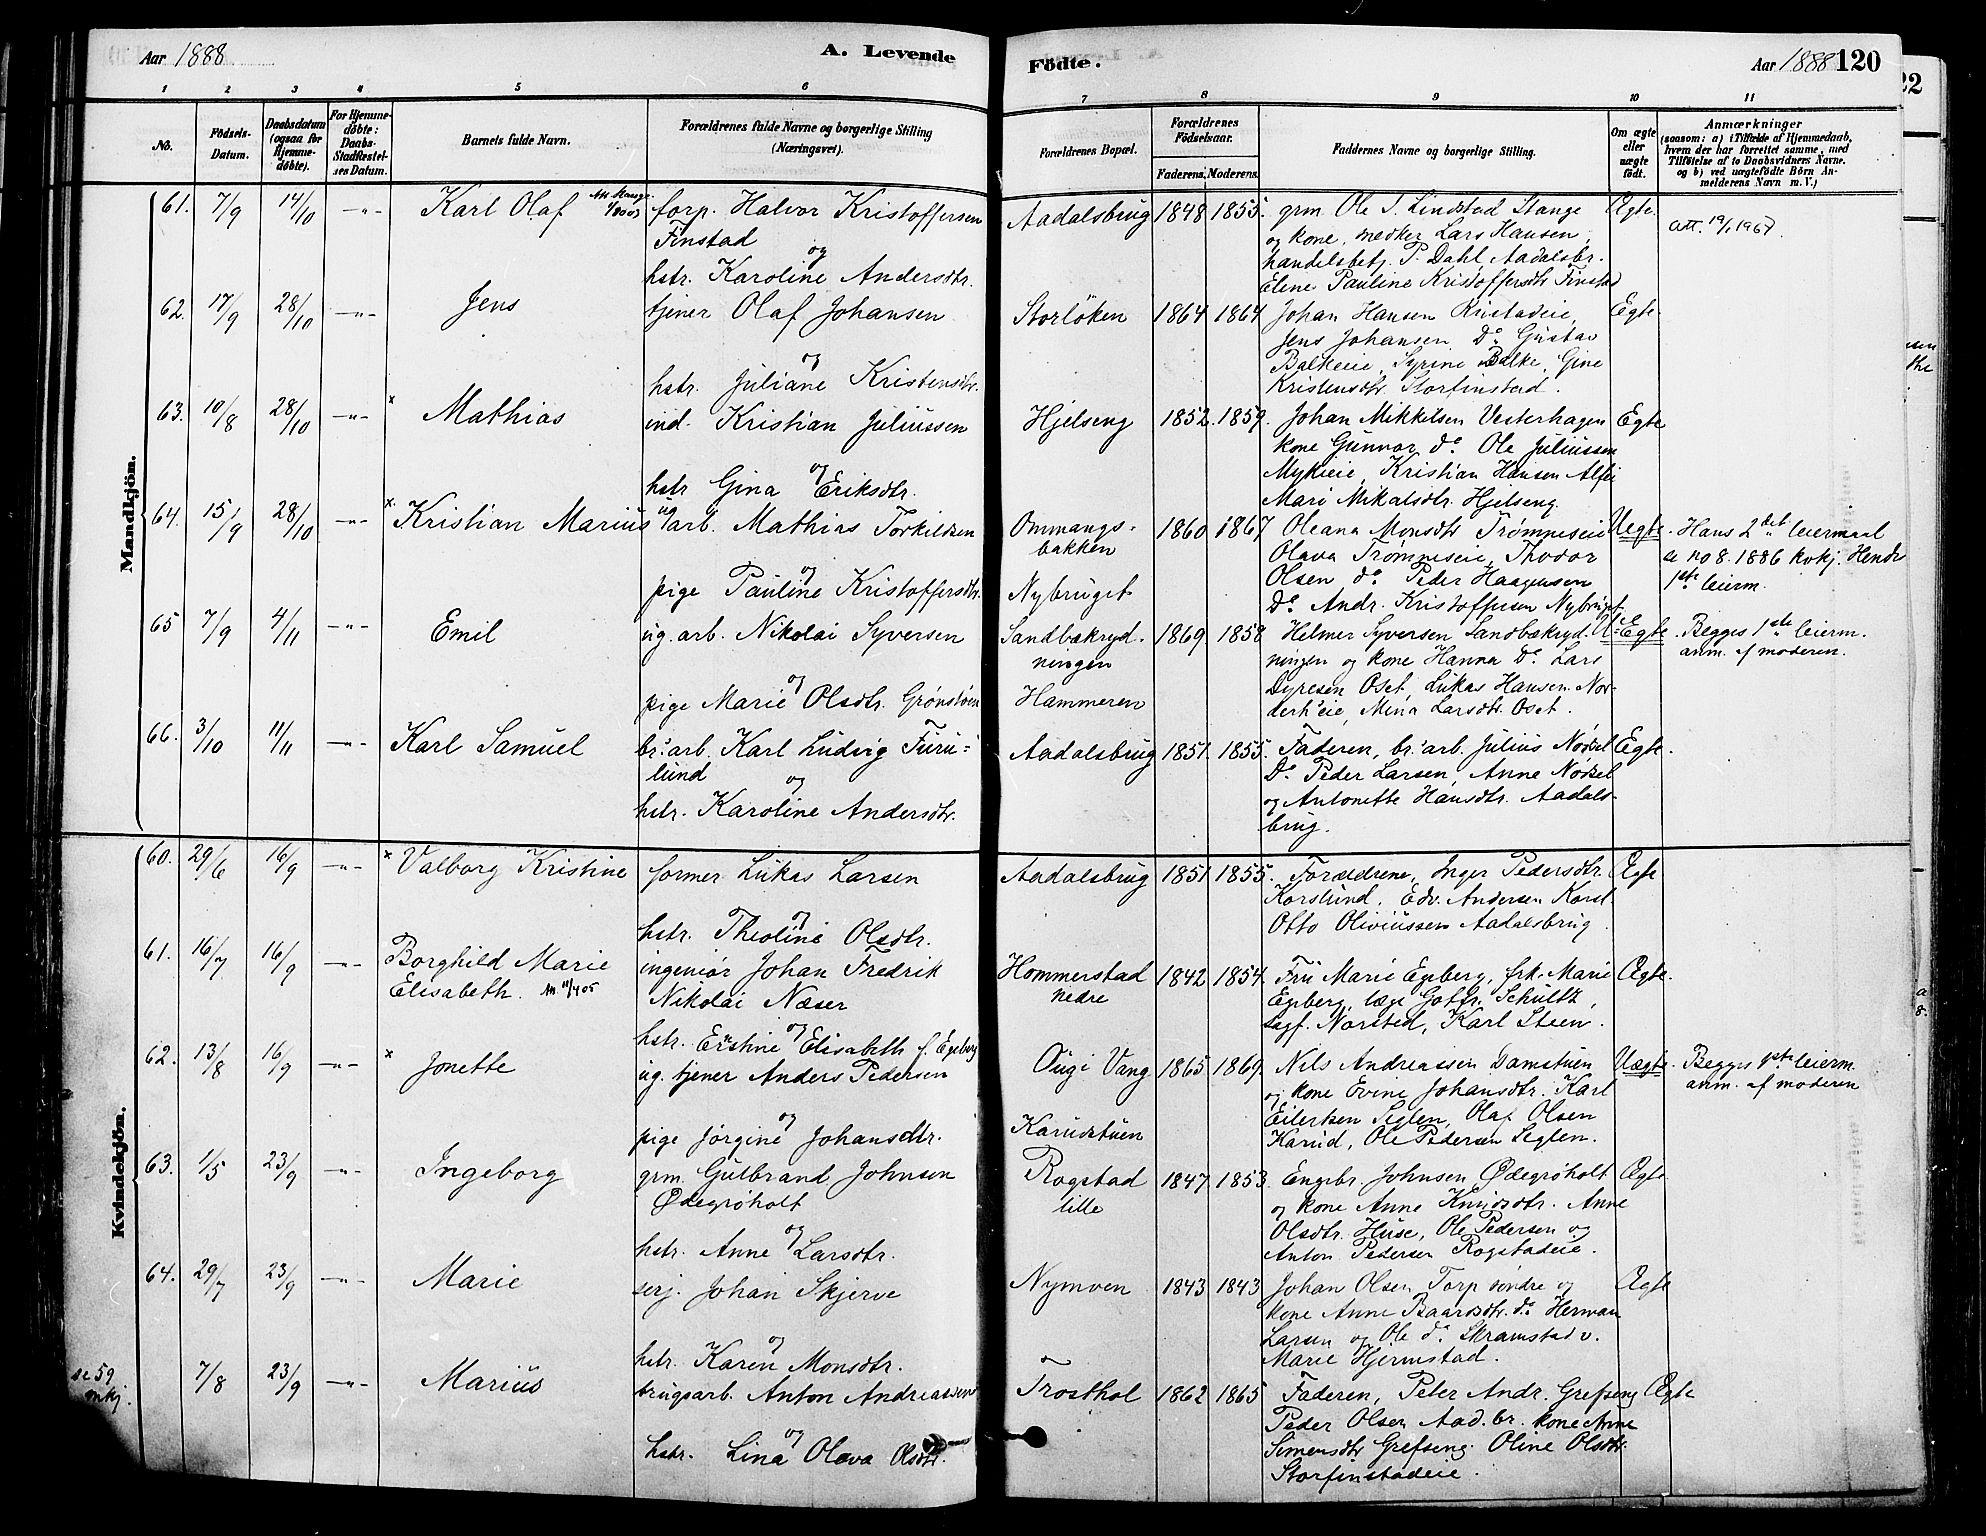 Aar 1888
A. Levende
Födte.
Aar 1888 120
22
1 2 3 4 5 6 7 8 9 10 11
No.
Födsels-Datum.
Daabsdatum (ogsaa for Hjemme-döbte).
For Hjemme-döbte: Daabs-Stadfæstel-ses Datum.
Barnets fulde Navn.
Forældrenes fulde Navne og borgerlige Stilling (Næringsvei).
Forældrenes Bopæl.
Forældrenes Födselsaar.
Faderens. Moderens.
Faddernes Navne og borgerlige Stilling.
Om ægte eller uægte födt.
Anmærkninger
(saasom: a) i Tilfælde af Hjemmedaab,
hvem der har forrettet samme, med
Tilföielse af to Daabsvidners Navne.
og b) ved uægtefödte Börn An-
melderens Navn m. V.)
Mandkjön.
61. 7/9 14/10 -"- Karl Olaf
forp. Halvor Kristoffersen
Finstad
og
hstr. Karoline Andersdtr.
Aadalsbrug 1848 1855.
grm. Ole S. Lindstad Stange
og kone, snedker Lars Hansen,
handelsbetj. P. Dahl Aadalsbr.
Elene Pauline Kristoffersdtr Finstad
Ægte.
att. 19/1 1967.
62. 17/9 28/10 -"- Jens
tjener Olaf Johansen
og
hstr. Juliane Kristensdtr.
Storlöken 1864 1864
Johan Hansen Ristadeie,
Jens Johansen Do Gustav
Balkeeie, Syrine Balke, Gine
Kristensdtr Storfinstad.
Egte.
63. 10/8 28/10 -"- x Mathias
ind. Kristian Juliussen
og
hstr Gina Eriksdtr.
Hjelseng 1852. 1859.
Johan Mikkelsen Vesterhagen
kone Gunnor do Ole Juliussen
Mykleie, Kristian Hansen Alfei
Mari Mikalsdtr. Hjelseng
Egte
64. 15/9 28/10 -"- x Kristian Marius
ug arb. Mathias Torkildsen
og
pige Pauline Kristoffersdtr.
Ommangs-
bakken
Nybruget
1860 1867
Oleana Monsdtr Trømneseie
Olava Trømneseie, Thodor
Olsen do Peder Haagensen
Do Andr. Kristoffersen Nybruget
Uegte.
Hans 2det leiermaal
se no 8. 1886 kvkj. Hendes
1ste leierm.
65 7/9 4/11 -"- Emil
ug. arb. Nikolai Syversen
og
pige Marie Olsdtr. Grønstøen
Sandbækryd-
ningen
Hammeren
1869 1858
Helmer Syversen Sandbækryd-
ningen og kone Hanna Do Lars
Dyresen Oset, Lukas Hansen Nor-
derh'eie, Mina Larsdtr. Oset.
U-Egte.
Begges 1ste leierm.
anm. af moderen.
66. 3/10 11/11 -"- Karl Samuel
br.arb. Karl Ludvig Furu-
lund
og
hstr. Karoline Andersdtr.
Aadalsbrug 1851. 1855.
Faderen, br.arb. Julius Nødsel
Do Peder Larsen, Anne Nødsel
og Antonette Hansdtr. Aadals-
brug.
Egte.
Kvindekjön.
60. 29/6 16/9 -"- x Valborg Kristine
former Lukas Larsen
og
hstr. Theoline Olsdtr.
Aadalsbrug 1851 1855.
Forældrene, Inger Pedersdtr.
Korslund, Edv. Andersen Korsl.
Otto Oliviussen Aadalsbrug.
Ægte
61. 16/7 16/9 -"- Borghild Marie
Elisabeth.
ingeniør Johan Fredrik
Nikolai Næser
og
hstr. Ernstine Elisabeth f. Egeberg
Hommerstad
nedre
1842 1854.
Fru Marie Egeberg, frk. Marie
Egeberg, læge Gottfr. Schultz,
sagf. Norsted, Karl Steen.
Ægte.
62. 13/8 16/9 -"- x Jonette
ug. tjener Anders Pedersen
og
pige Jørgine Johansdtr.
Ougi Vang
Karudstuen
1865 1869.
Nils Andreassen Damstuen
og kone Evine Johansdtr. Karl
Eilertsen Seglen, Olaf Olsen
Karud, Ole Pedersen Seglen.
Uægte.
Begges 1ste leierm.
anm. af moderen
63. 1/5 23/9 -"- Ingeborg
grm. Gulbrand Johnsen
Ødegrøholt
og
hstr. Anne Larsdtr.
Rogstad
lille
1847 1853.
Engebr. Johnsen Ødegrøholt
og kone Anne Knudsdtr. Anne
Olsdtr. Huse, Ole Pedersen og
Anton Pedersen Rogstadeie.
Ægte
64. 29/7 23/9 -"- Marie
serj. Johan Skjerve
og
hstr. Karen Monsdtr.
Nymoen 1843 1843
Johan Olsen Torp søndre og
kone Anne Baardsdtr. do Herman
Larsen og Ole do Skramstad v.
Marie Hjermstad.
Ægte
se 59
mkj.
7/8 23/9 -"- Marius
brugsarb. Anton Andreassen
og
hstr. Lina Olava Olsdtr.
Trosthol 1862 1865
Faderen, Peter Andr. Grefseng
Peder Olsen Aad. br. kone Anne
Simensdtr Grefseng. Oline Olsdtr.
Storfinstadeie.
Ægte